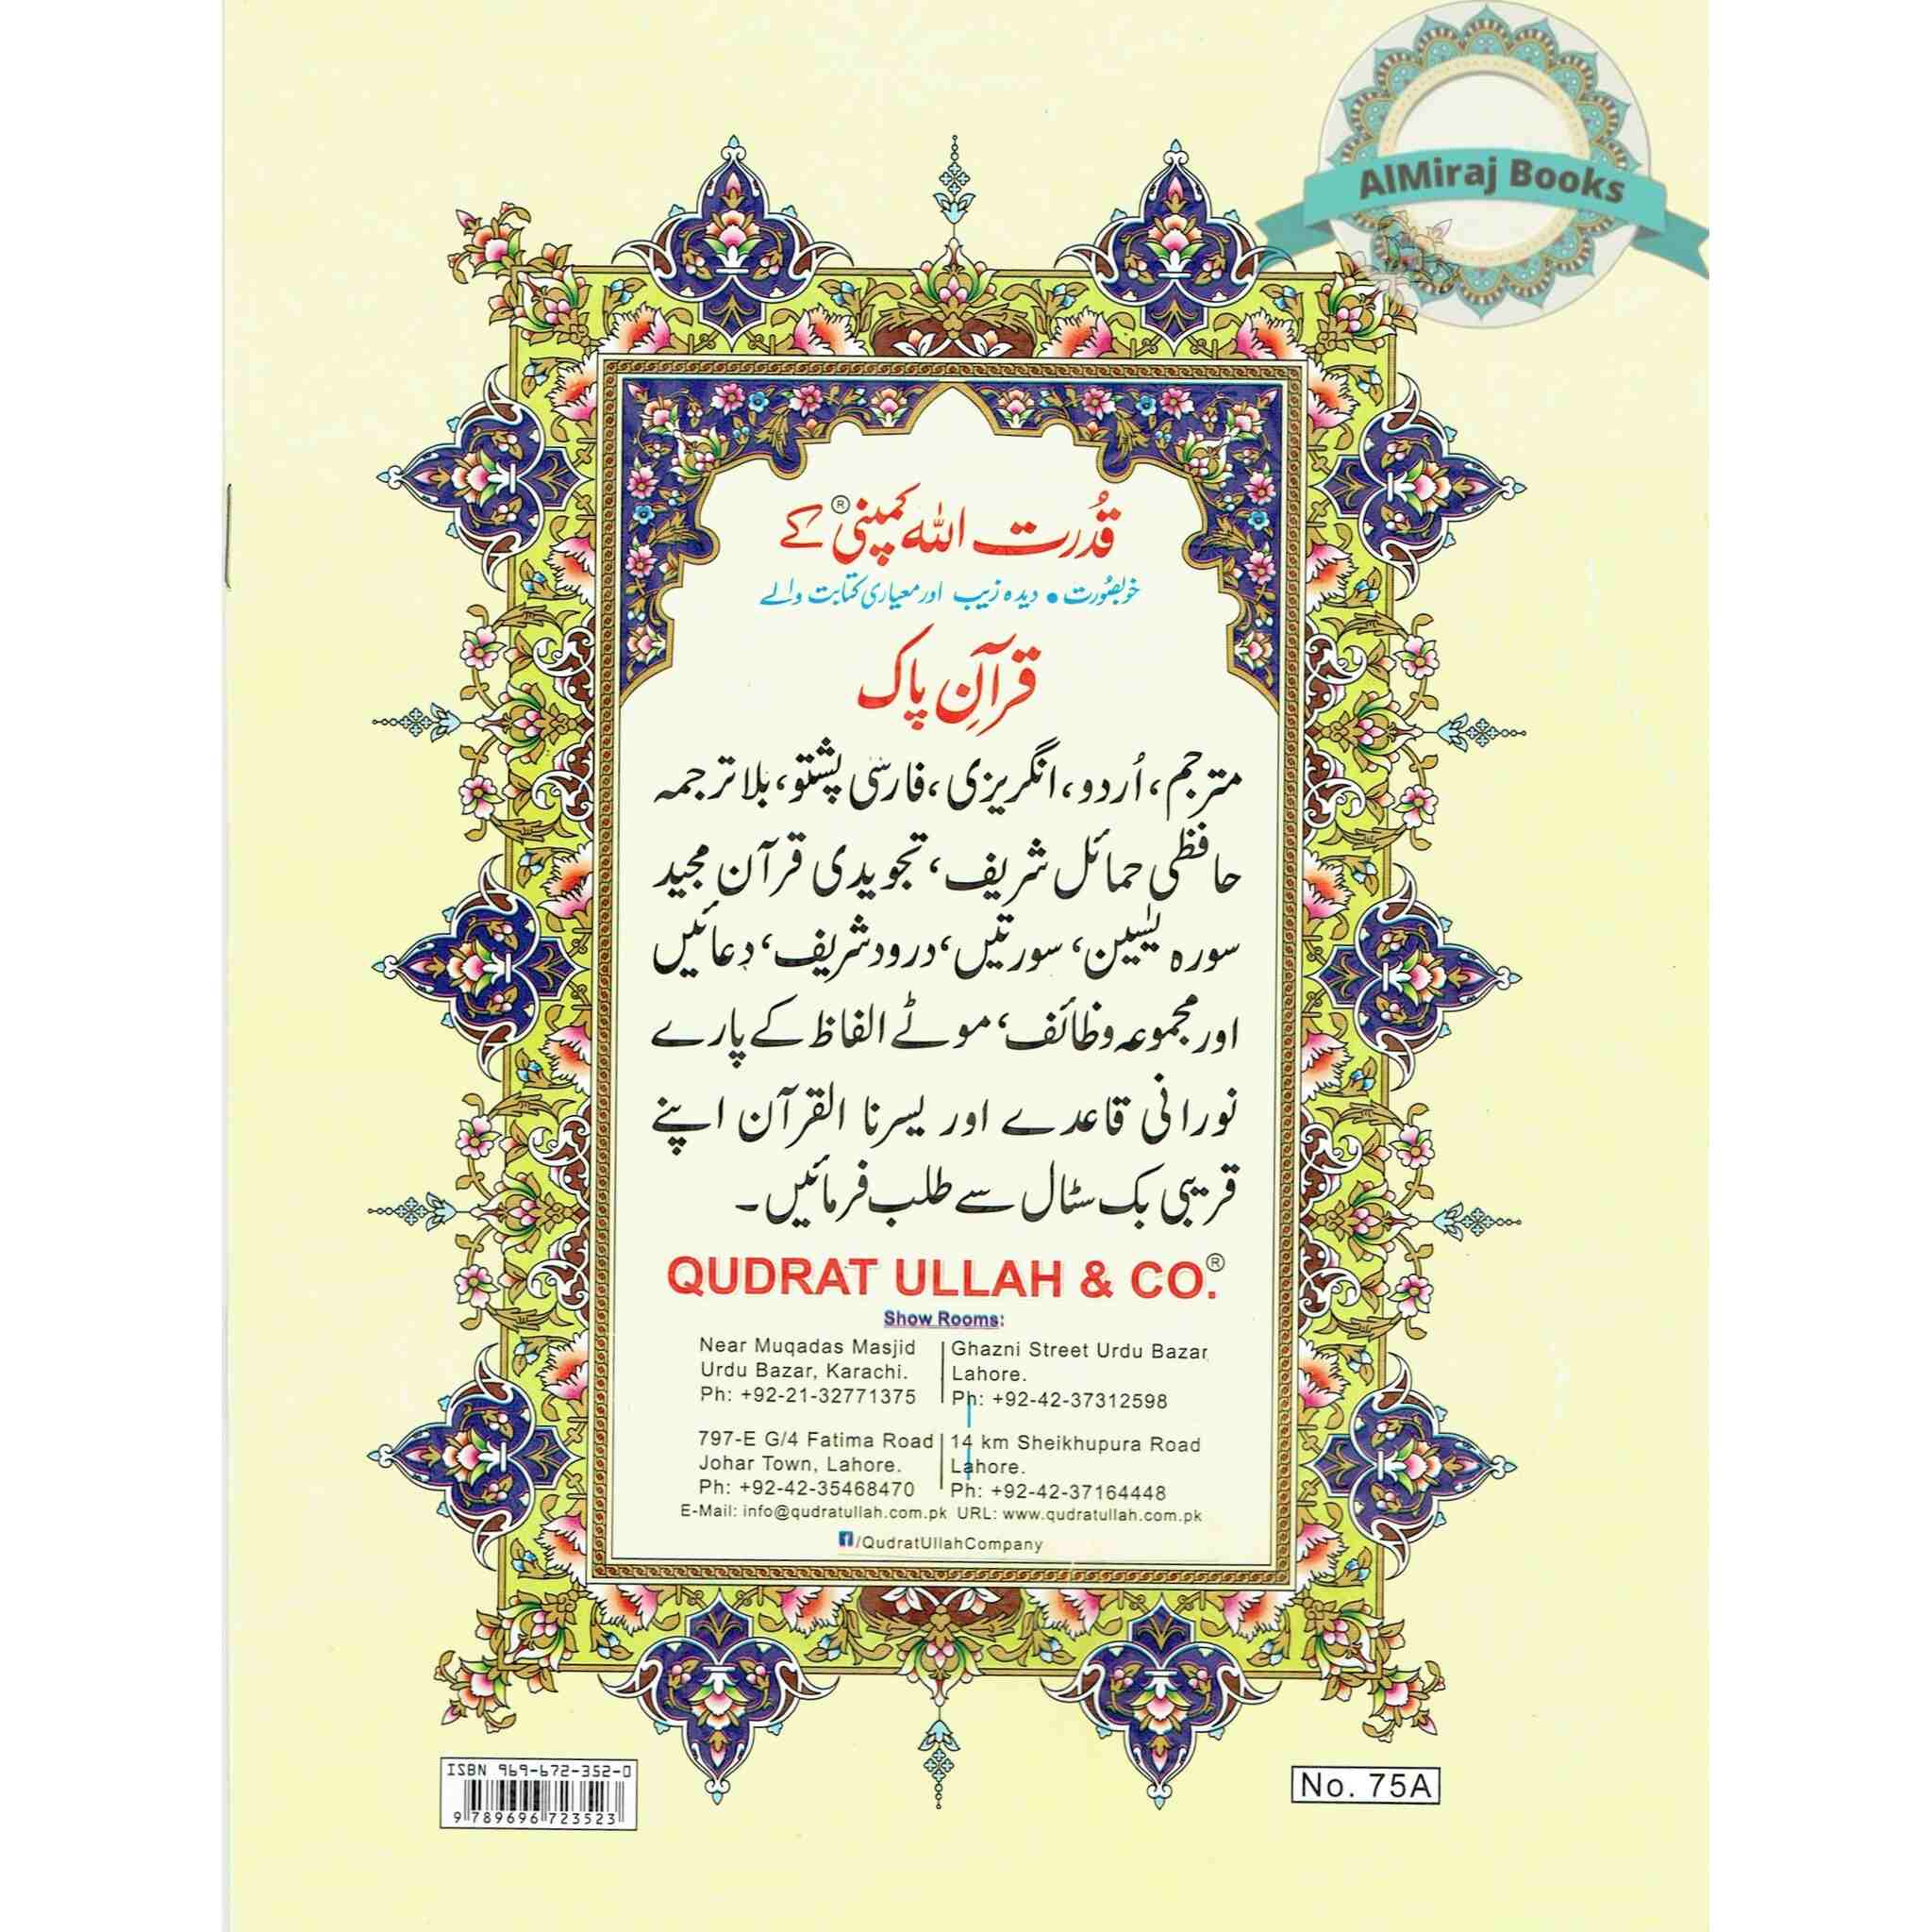 AlMiraj Books
قُدرت اللہ کمپنی® کے
خوبصُورت • دیدہ زیب اور معیاری کتابت والے
قرآنِ پاک
مترجم، اُردو، انگریزی، فارسی پشتو، بلا ترجمہ
حافظی حمائل شریف، تجویدی قرآن مجید
سورہ یٰسین، سورتیں، درود شریف، دعائیں
اور مجموعہ وظائف، موٹے الفاظ کے پارے
نورانی قاعدے اور یسرنا القرآن اپنے
قریبی بک سٹال سے طلب فرمائیں۔
QUDRAT ULLAH & CO.®
Show Rooms:
Near Muqadas Masjid
Urdu Bazar, Karachi.
Ph: +92-21-32771375
Ghazni Street Urdu Bazar
Lahore.
Ph: +92-42-37312598
797-E G/4 Fatima Road
Johar Town, Lahore.
Ph: +92-42-35468470
14 km Sheikhupura Road
Lahore.
Ph: +92-42-37164448
E-Mail: info@qudratullah.com.pk URL: www.qudratullah.com.pk
f/QudratUllahCompany
ISBN 969-672-352-0
9 789696 723523
No. 75A